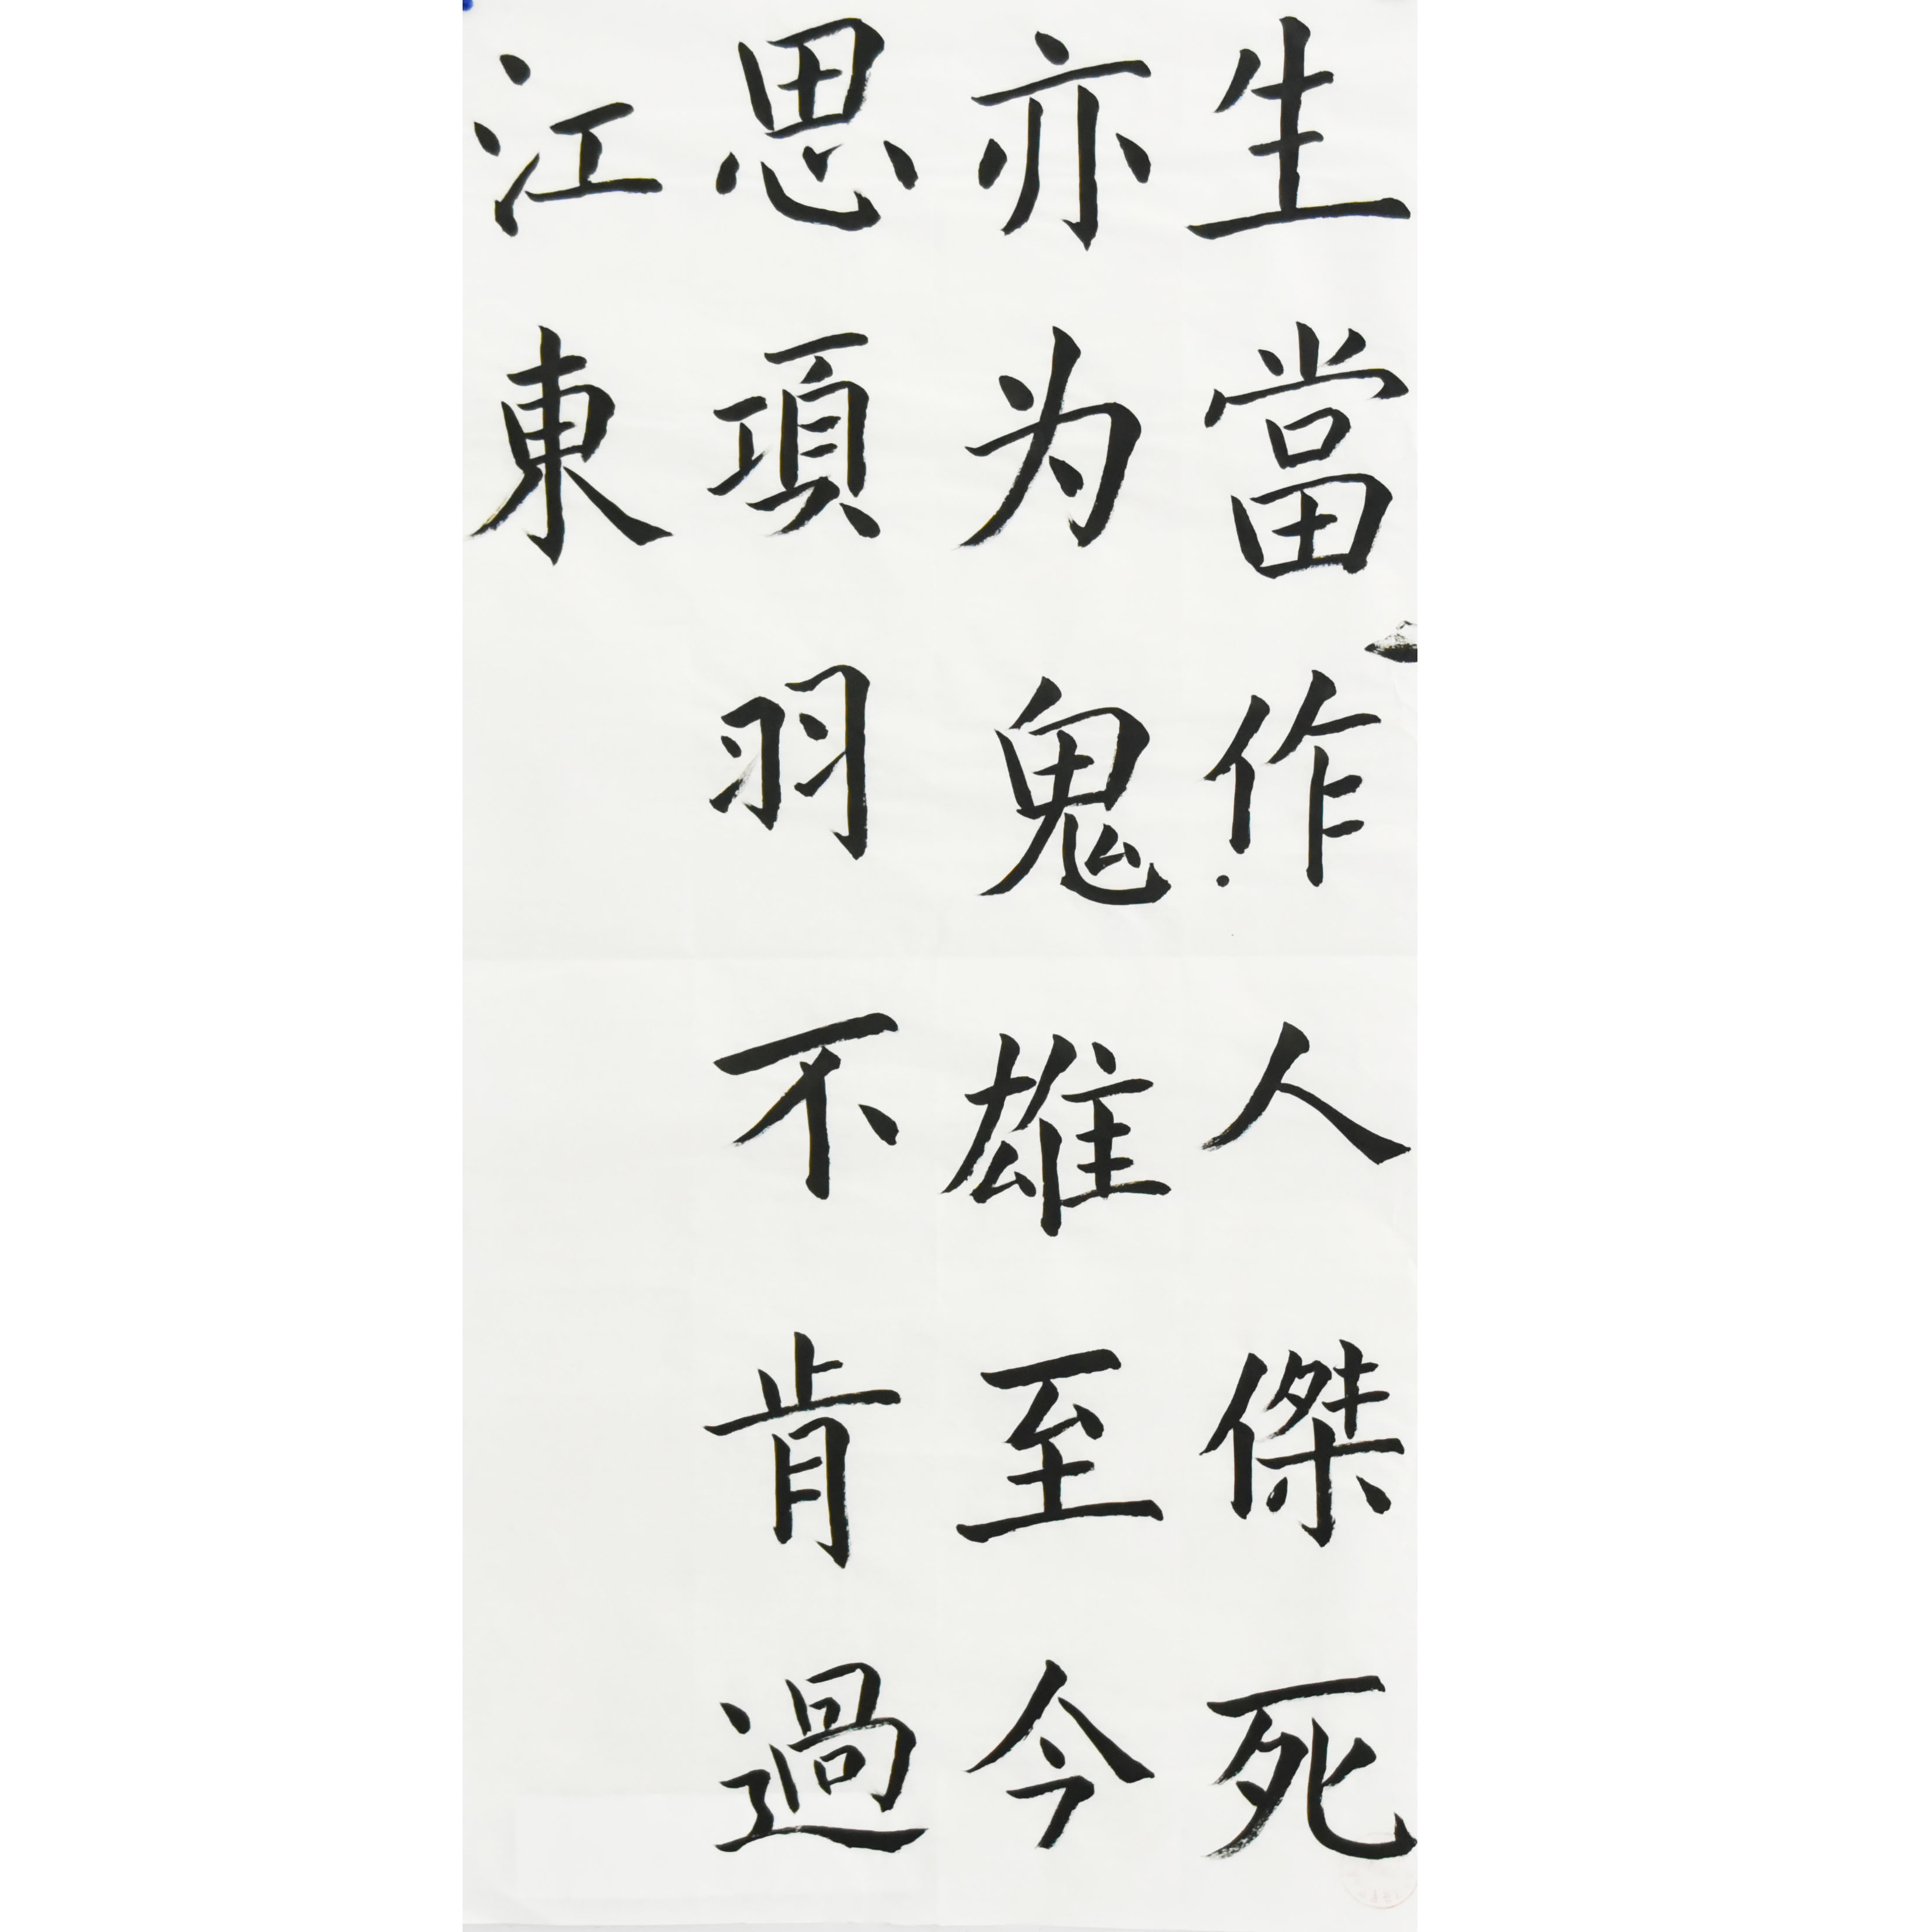 生當作人傑死
亦为鬼雄至今
思項羽不肯過
江東